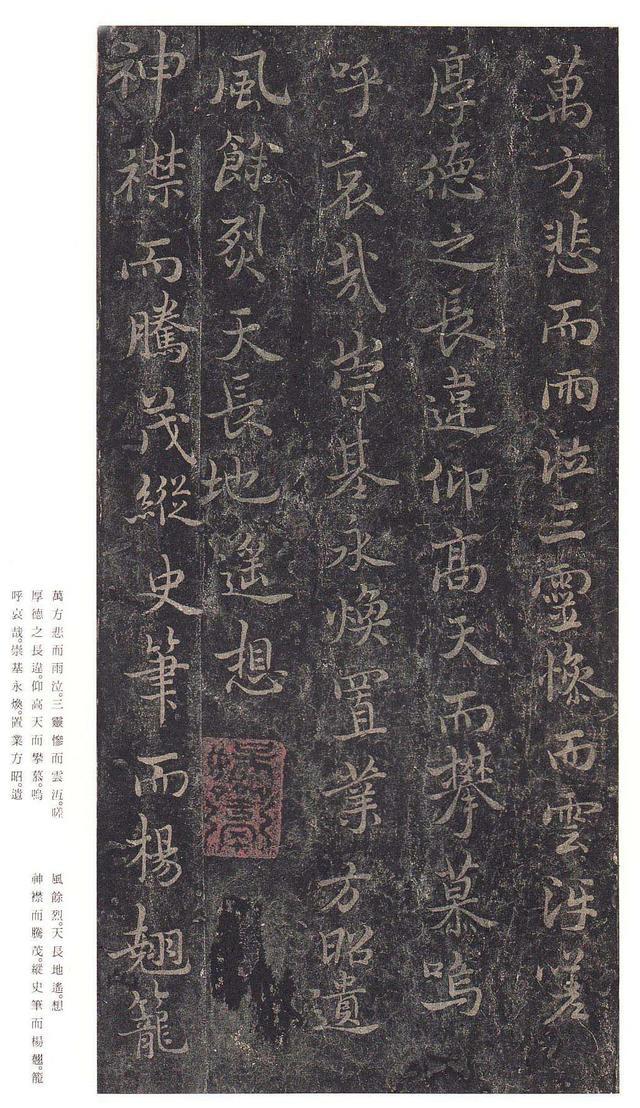 萬方悲而雨泣三靈慘而雲沍嗟
厚德之長違仰高天而攀慕嗚
呼哀哉崇基永煥置業方昭遺
風餘烈天長地遙想
神襟而騰茂縱史筆而楊翹籠
萬方悲而雨泣。三靈慘而雲沍。嗟
厚德之長違。仰高天而攀慕。嗚
呼哀哉。崇基永煥。置業方昭。遺
風餘烈。天長地遙。想
神襟而騰茂。縱史筆而楊翹。籠